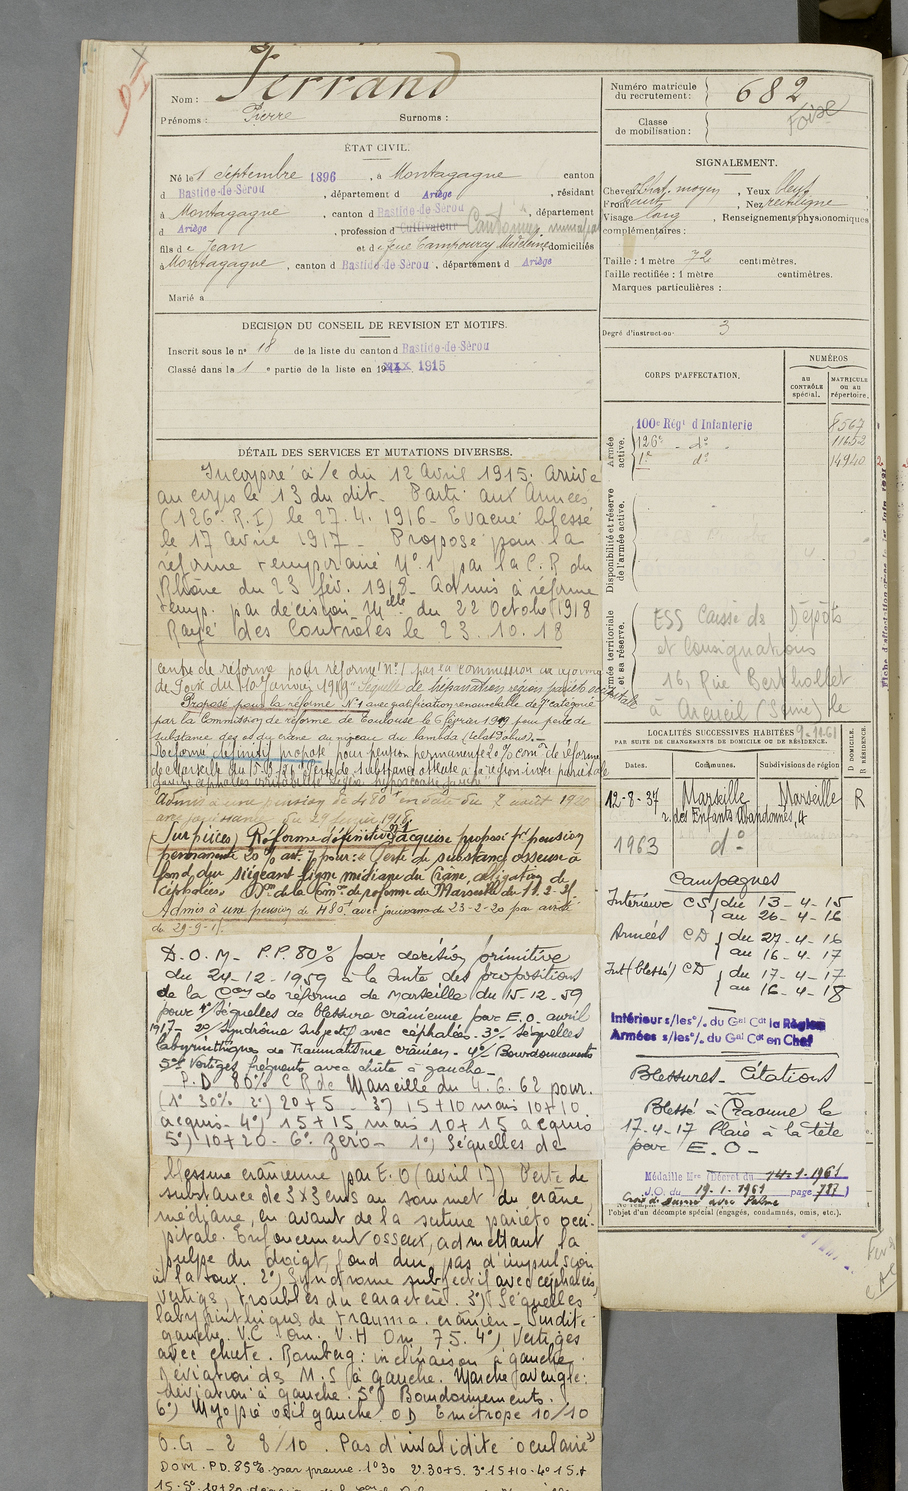 Nom : Ferrand
Prénoms : Pierre Surnoms :
ÉTAT CIVIL.
Né le 1 Septembre 1896, à Montagagne canton
d Bastide-de-Sérou, département d Ariège, résidant
à Montagagne, canton d Bastide-de-Sérou, département
d Ariège, profession d Cultivateur
fils de Jean et de domiciliés
à Montagagne, canton d Bastide-de-Sérou, département d Ariège
Marié à
DECISION DU CONSEIL DE REVISION ET MOTIFS.
Inscrit sous le n° 18 de la liste du canton d Bastide-de-Sérou
Classé dans la 1 e partie de la liste en 1915
DÉTAIL DES SERVICES ET MUTATIONS DIVERSES.
Incorporé à /c du 12 Avril 1915. Arrivé
au corps le 13 du dit. Parti aux Armées
(126e R.I) le 27.4.1916. Evacué blessé
le 17 avril 1917. Proposé pour la
réforme temporaire N°1 par la C.R du
Rhône du 23 fév. 1918. Admis à réforme
temp. par décision Mlle du 22 Octobre 1918
Rayé des Contrôles le 23.10.18
centre de réforme pour réforme N°1 par la Commission de réforme
de Foix du 10 Janvier 1919 de trépanation région pariéto occipitale
Proposé pour la réforme N°1 avec gratification renouvelable de 7e catégorie
par la Commission de réforme de Toulouse le 6 février 1919 pour perte de
substance des os du crâne au niveau du lambda
Réforme définitive proposé pour pension permanente 20% Com. de réforme
de Marseille du Perte de substance osseuse à la région inter pariétale
Admis à une pension de 480
du 29 février 1918
(Surpièces) Réforme définitive N°1 acquise proposé pr pension
permanente 20% art. 7 pour : Perte de substance osseuse à
fond dur siégeant ligne médiane du Crâne,
céphalées. Don de la Comon de réforme de Marseille du 11.2.21
Admis à une pension de 480f avec jouissance du 23-2-20 par arrêté
du 29-9-1
D.O.M- P.P. 80% par décision primitive
du 24-12-1959 à la suite des propositions
de la Con de réforme de Marseille du 15-12-59
pour 1° Séquelles de blessure crânienne par E.O. avril
1917 - 2° Syndrome subjectif avec céphalées - 3° Séquelles
labyrinthiques de Traumatisme crânien - 4° Bourdonnements
5° Vertiges fréquents avec chute à gauche -
P.D 80% C R de Marseille du 4.6.62 pour
(1° 30% 2°) 20+5 - 3°) 15+10 mais 10+10
acquis - 4°) 15+15 mais 10+15 acquis
5°) 10+20 - 6° Zéro - 1°) Séquelles de
blessure crânienne par E.O (avril 17) Perte de
substance de 3x3 cms au sommet du crâne
médiane, en avant de la suture pariéto occi-
pitale. Enfoncement osseux, admettant la
pulpe du doigt, fond dur, pas d'impulsion
à la toux. 2°) Syndrome subjectif avec céphalées
vertiges, troubles du caractère. 3°) Séquelles
labyrinthiques de trauma. crânien - Surdité
gauche. V.C Om. V.H Om 75. 4°) Vertiges
avec chute. Romberg : inclinaison à gauche.
Déviation des M.S à gauche. Marche aveugle :
déviation à gauche. 5°) Bourdonnements.
6°) Myopie oeil gauche. OD Emétrope 10/10
O.G - 2 8/10. Pas d'invalidité oculaire"
DOM. P.D. 85% par preuve. 1° 30 2° 30+5. 3° 15+10. 4° 15+
15. 5° 10+20
Numéro matricule du recrutement : 682
Foix
Classe de mobilisation :
SIGNALEMENT.
Cheveux chat. moyen, Yeux bleus
Front haut, Nez rectiligne
Visage long, Renseignements physionomiques
complémentaires :
Taille : 1 mètre 72 centimètres.
Taille rectifiée : 1 mètre centimètres.
Marques particulières :
Degré d'instruction 3
CORPS D'AFFECTATION.
NUMÉROS
au CONTRÔLE spécial.
MATRICULE ou au répertoire.
Armée active.
100e Régt d'Infanterie 8567
126e - do - 11452
1er do 14940
Disponibilité et réserve de l'armée active.
Armée territoriale et sa réserve.
ESS Caisse des Dépôts
et Consignations
16, Rue Berthollet
à Arcueil (Seine) le
9.11.61
LOCALITÉS SUCCESSIVES HABITÉES
PAR SUITE DE CHANGEMENTS DE DOMICILE OU DE RÉSIDENCE.
Dates. Communes. Subdivisions de région D DOMICILE. R RÉSIDENCE.
12-8-37 Marseille Marseille R
r. des Enfants Abandonnés, 4
1963 do
Campagnes
Intérieur CS du 13-4-15
au 26-4-16
Armées CD du 27-4-16
au 16-4-17
Int(blessé) CD du 17-4-17
au 16-4-18
Intérieur s/les%. du Gal Cdt la Région
Armées s/les%. du Gal Cdt en Chef
Blessures - Citations
Blessé à Craonne le
17-4-17 Plaie à la tête
par E.O-
Médaille Mre (Décret du 14.1.1961
J.O. du 19.1.1961 page 787)
Croix de Guerre avec Palme
l'objet d'un décompte spécial (engagés, condamnés, omis, etc.).